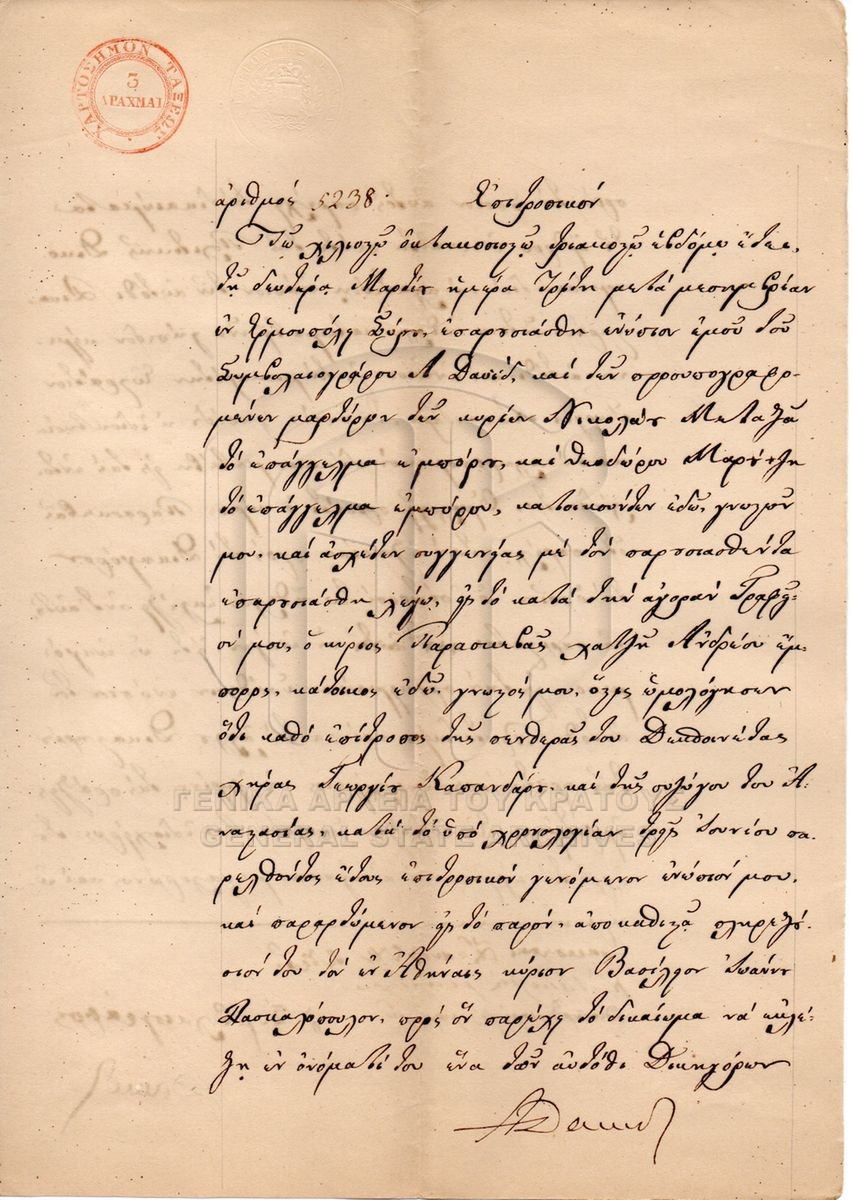 ΧΑΡΤΟΣΗΜΟΝ ΤΑΞΕΩΣ
3
ΔΡΑΧΜΑΙ
ἀριθμός 5238. Ἐπιτροπικόν
Τῷ χιλιοστῷ ὀκτακοσιοστῷ τριακοστῷ ἑβδόμῳ ἔτει,
τῇ δευτέρᾳ Μαρτίου ἡμέρᾳ Τρίτῃ μετά μεσημβρίαν
ἐν Ἑρμουπόλει Σύρου, ἐπαρουσιάσθη ἐνώπιον ἐμοῦ τοῦ
Συμβολαιογράφου Α Δαυίδ, καί τῶν προσυπογραφο-
μένων μαρτύρων τῶν κυρίων Νικολάου Μεταξᾶ
τό ἐπάγγελμα ἐμπόρου, καί Θεοδώρου
τό ἐπάγγελμα ἐμπόρου, κατοικούντων ἐδῶ, γνωστῶν
μου, καί ἀσχέτων συγγενείας μέ τόν παρουσιασθέντα
ἐπαρουσιάσθη λέγω, εἰς τό κατά τήν ἀγοράν Γραφεῖ-
όν μου, ὁ κύριος Παρασκευᾶς χατζῆ Ἀνδρέου ἔμ-
πορος, κάτοικος ἐδῶ, γνωστός μου, ὅστις ὡμολόγησεν
ὅτι καθό ἐπίτροπος τῆς πενθερᾶς του
χήρας Γεωργίου Καπανδάρου, καί τῆς συζύγου του Ἀ-
ναστασίας, κατά τό ὑπό χρονολογίαν Ἰουνίου πα-
ρελθόντος ἔτους ἐπιτροπικόν γενόμενον ἐνώπιόν μου,
καί παραρτώμενον εἰς τό παρόν, ἀποκαθιστᾷ πληρεξού-
σιόν του τόν ἐν Ἀθήναις κύριον Βασίλειον Ἰωάννου
Πασκαλόπουλον, πρός ὅν παρέχει τό δικαίωμα νά ἐκλέ-
ξῃ ἐν ὀνόματί του ἕνα τῶν αὐτόθι Δικηγόρων
ΑΔαυίδ
ΓΕΝΙΚΑ ΑΡΧΕΙΑ ΤΟΥ ΚΡΑΤΟΥΣ
GENERAL STATE ARCHIVES